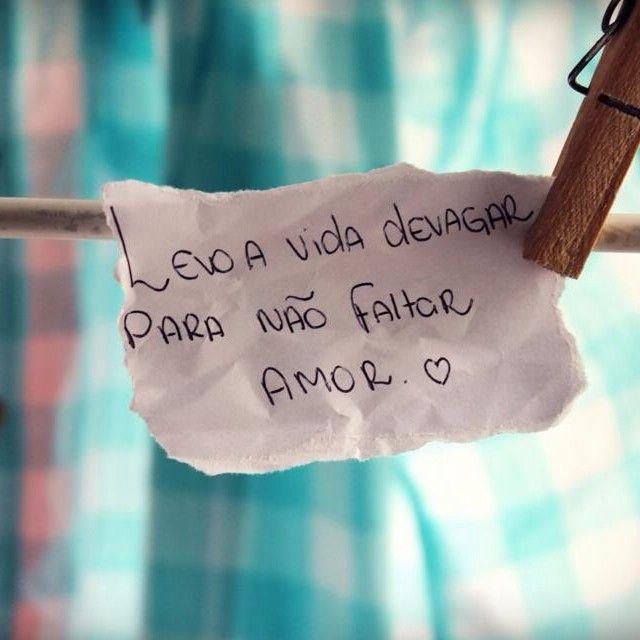 Levo A vida devagar
Para não faltar
Amor. ♡